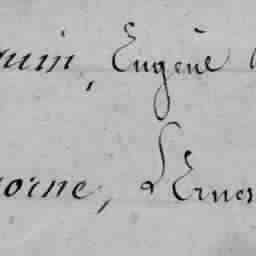 uin, Eugène
orne, Ernes